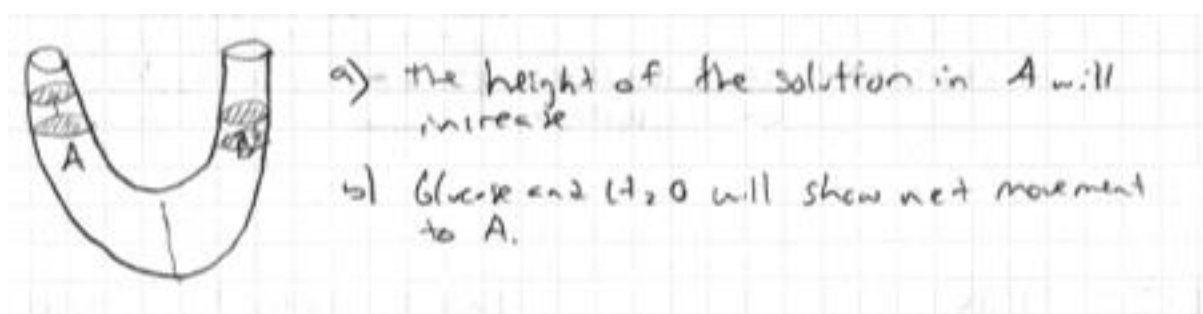 A
B
a) the height of the solution in A will
increase
b) Glucose and H2O will show net movement
to A.